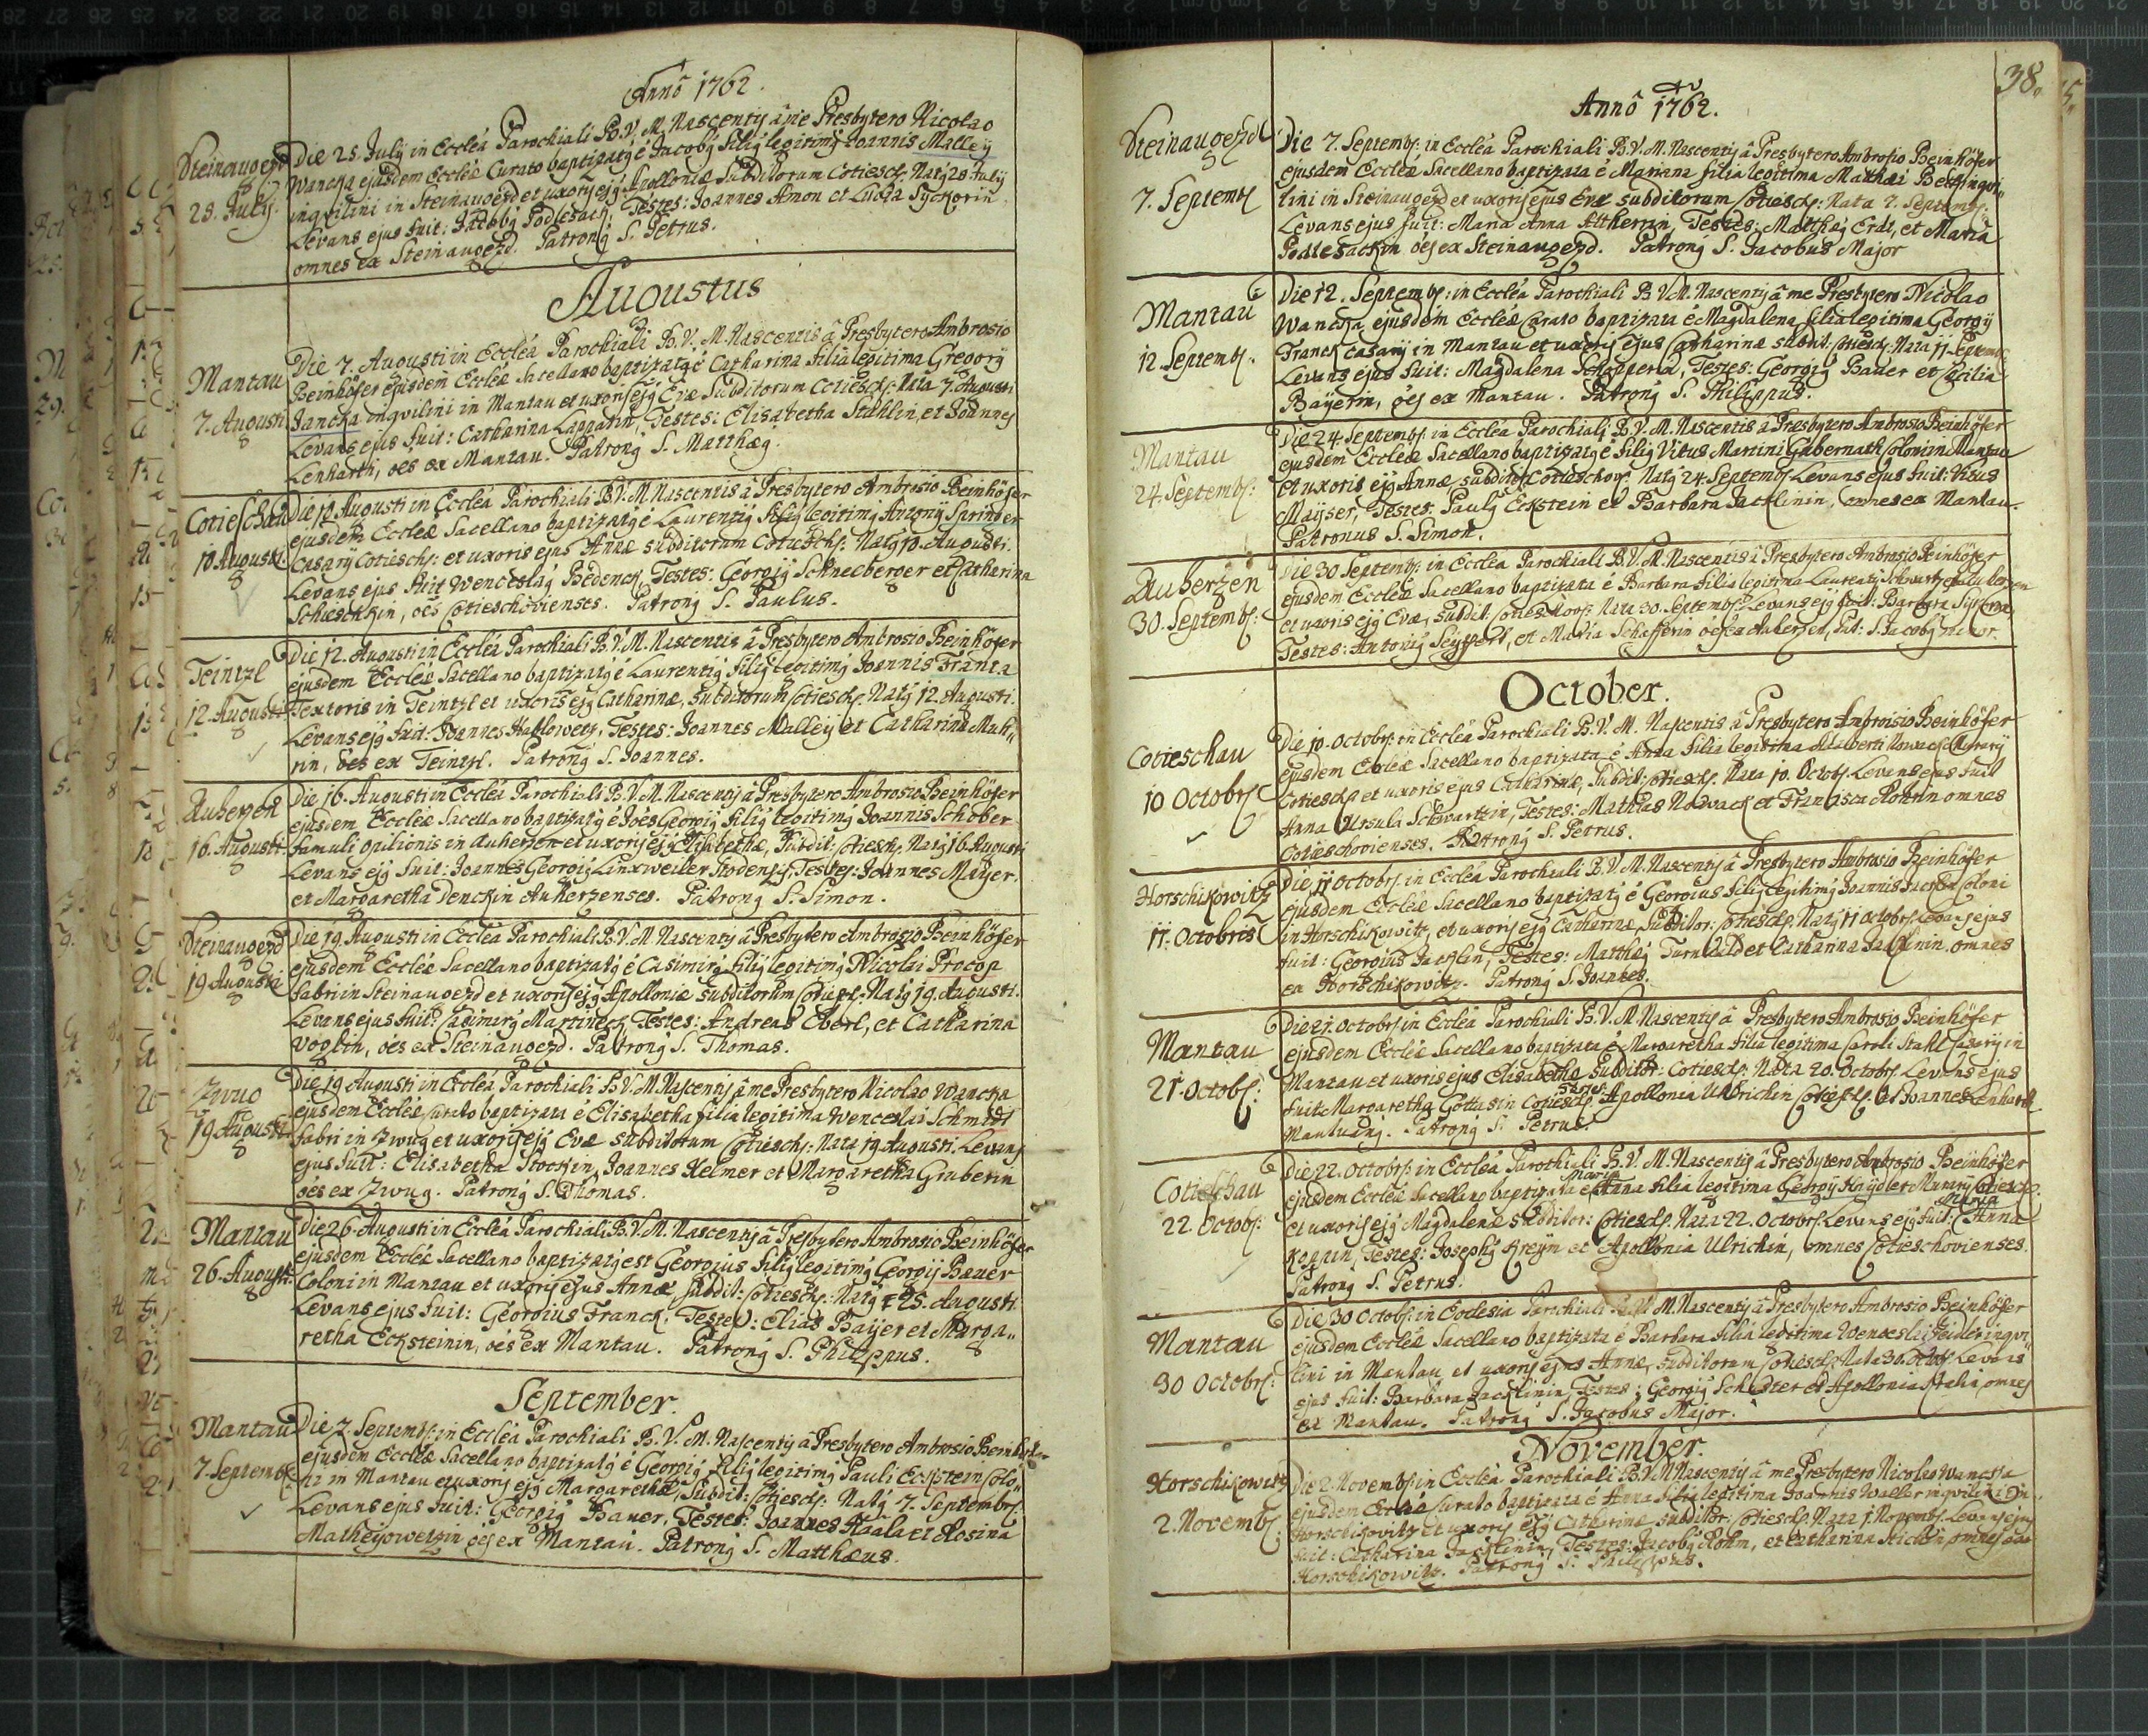 Anno 1762.
Steinaugezd
28. July.
Die 28. July in Eccléa Parochiali B. V. M. Nascentis à me Presbytero Nicolao
Wancka ejusdem Eccléae Curato baptizatq é Jacobq filiq legitimq Joannis Malley
inqvilini in Steinaugezd et uxoris ejq Apolloniae Subditorum Cotiesch: Natq 28 July
Levans ejus fuit: Jacobq Podlesack, Testes: Joannes Amon et Lucia Syckorin
omnes ex Steinaugezd. Patronq S. Petrus.
Augustus
Mantau
7. Augusti
Die 7. Augusti in Eccléa Parochiali B. V. M. Nascentis à Presbytero Ambrosio
Beinhöfer ejusdem Eccléae Sacellano baptizatq é Catharina filia legitima Gregorij
Jancka inqvilini in Mantau et uxoris ejq Evae Subditorum Cotiesch: Nata 7. Augusti
Levans ejus fuit: Catharina Lappatin, Testes: Elisabetha Stahlin, et Joannes
Lenhartt, oés ex Mantau. Patronq S. Matthaeq.
Cotieschau
10 Augusti.
Die 10 Augusti in Eccléa Parochiali B. V. M. Nascentis à Presbytero Ambrosio Beinhöfer
ejusdem Eccléae Sacellano baptizatq é Laurentiq filiq legitimq Antonij Sprinder
Casarij Cotiesch: et uxoris ejus Annae subditorum Cotiesch: Natq 10. Augusti.
Levans ejus fuit Wenceslaq Bedenck, Testes: Georgiq Schneeberger et Catharina
Schieschkin, oés Cotieschovienses. Patronq S. Paulus.
Teintzl
12. Augusti
Die 12. Augusti in Eccléa Parochiali B. V. M. Nascentis à Presbytero Ambrosio Beinhöfer
ejusdem Eccléae Sacellano baptizatq é Laurentiq filiq legitimq Joannis Franta
Textoris in Teintzl et uxoris ejq Catharinae, subditorum Cotiesch: Natq 12. Augusti.
Levans ejq fuit: Joannes Hawlowetz, Testes: Joannes Malleij et Catharina Muh„
rin, oés ex Teintzl. Patronq S. Joannes.
Auherzen
16. Augusti
Die 16. Augusti in Eccléa Parochiali B. V. M. Nascentis à Presbytero Ambrosio Beinhöfer
ejusdem Eccléae Sacellano baptizatq é Joés Georgiq filiq legitimq Joannis Schober
famuli opilionis in Auherzen et uxoris ejq Elisabethae, Subdit: Cotiesch: Natq 16. Augusti
Levans ejq fuit: Joannes Georgiq Linxweiler Testes: Joannes Mayer,
et Margaretha Denckin Auherzenses. Patronq S. Simon.
Steinaugezd
19 Augusti
Die 19. Augusti in Eccléa Parochiali B. V. M. Nascentis à Presbytero Ambrosio Beinhöfer
ejusdem Eccléae Sacellano baptizatq é Casimirq filiq legitimq Nicolai Procop
fabri in Steinaugezd et uxoris ejq Apolloniae subditorum Cotiesch: Natq 19. Augusti.
Levans ejus fuit: Casimirq Martineck, Testes: Andreas Eberl, et Catharina
Voglin, oés ex Steinaugezd. Patronq S. Thomas.
Zwug
19 Augusti
Die 19 Augusti in Eccléa Parochiali B. V. M. Nascentis à me Presbytero Nicolao Wancka
ejusdem Eccléae Curato baptizata é Elisabetha filia legitima Wenceslai Schmidt
fabri in Zwug et uxoris ejq Evae Subditorum Cotiesch: Nata 19 Augusti. Levans
ejus fuit: Elisabetha Stockin, Joannes Helmer et Margaretha Gruberin
oés ex Zwug. Patronq S. Thomas.
Mantau
26. Augusti.
Die 26. Augusti in Eccléa Parochiali B. V. M. Nascentis à Presbytero Ambrosio Beinhöfer
ejusdem Eccléae Sacellano baptizatq est Georgius filiq legitimq Georgij Bauer
Coloni in Mantau et uxoris ejus Annae, subdit: Cotiesch: Natq 25. Augusti.
Levans ejus fuit: Georgius Franck. Testes: Elias Baijer et Marga„
retha Ecksteinin, oés ex Mantau. Patronq S. Philippus.
September
Mantau
7. Septemb:
Die 7. Septemb: in Eccléa Parochiali B. V. M. Nascentis à Presbytero Ambrosio Beinhöfer
ejusdem Eccléae Sacellano baptizatq é Georgiq filiq legitimq Pauli Eckstein Colo„
ni in Mantau et uxoris ejq Margarethae, Subdit: Cotiesch: Natq 7. Septembr.
Levans ejus fuit: Georgiq Bauer, Testes: Joannes Haala et Rosina
Matheijowetzin oés ex Mantau. Patronq S. Matthaeus.
38.
Anno 1762.
Steinaugezd
7. Septemb
Die 7. Septemb: in Eccléa Parochiali B. V. M. Nascentis à Presbytero Ambrosio Beinhöfer
ejusdem Eccléae Sacellano baptizata é Mariana filia legitima Mathaei inqvi„
lini in Steinaugezd et uxoris ejus Evae subditorum Cotiesch: Nata 7. Septemb:
Levans ejus fuit: Maria Anna Altherrin, Testes: Matthaeq Erdt, et Maria
Podlesackin oés ex Steinaugezd. Patronq S. Jacobus Major
Mantau
12. Septemb.
Die 12. Septemb: in Eccléa Parochiali B. V. M. Nascentis à me Presbytero Nicolao
Wancka ejusdem Eccléae Curato baptizata é Magdalena filia legitima Georgij
Franck Casarij in Mantau et uxoris ejus Catharinae subdit: Cotiesch: Nata 11 Septemb:
Levans ejus fuit: Magdalena Schopperin, Testes: Georgiq Bauer et Caecilia
Bayerin, oés ex Mantau. Patronq S. Philippus.
Mantau
24. Septemb:
Die 24. Septemb: in Eccléa Parochiali B. V. M. Nascentis à Presbytero Ambrosio Beinhöfer
ejusdem Eccléae Sacellano baptizatq é filiq Vitus Martini Gubernath Coloni in Mantau
et uxoris ejq Annae, subdit: Cotieschov: Natq 24. Septemb: Levans ejus fuit: Vitus
Mayser, Testes: Paulq Eckstein et Barbara Jacklinin, omnes ex Mantau.
Patronus S. Simon.
Auherzen
30. Septemb:
Die 30 Septemb: in Eccléa Parochiali B. V. M. Nascentis à Presbytero Ambrosio Beinhöfer
ejusdem Eccléae Sacellano baptizata é Barbara filia legitima Laurentij Auherzen
et uxoris ejq Evae, subdit: Cotieschov: Nata 30. Septemb: Levans ejq fuit: Barbara
Testes: Antoniq Seyffert, et Maria Schafferin oés ex Auherzen, Pat: S. Jacobq
October.
Cotieschau
10 Octobr
Die 10. Octobr: in Eccléa Parochiali B. V. M. Nascentis à Presbytero Ambrosio Beinhöfer
ejusdem Eccléae Sacellano baptizata é Anna filia legitima Adalberti Nowack Murarij
Cotiesch: et uxoris ejus Catharinae, Subdit: Cotiesch: Nata 10. Octob: Levans ejus fuit
Anna Ursula Schwartzin, Testes: Mathias Nowack et Francisca omnes
Cotieschovienses. Patronq S. Petrus.
Horschikowitz
11. Octobris
Die 11 Octobr: in Eccléa Parochiali B. V. M. Nascentis à Presbytero Ambrosio Beinhöfer
ejusdem Eccléae Sacellano baptizatq é Georgius filiq legitimq Joannis Coloni
in Horschikowitz, et uxoris ejq Catharinae, Subditor: Cotiesch: Natq 11 Octobr: Levans ejus
fuit: Georgius Jacklin, Testes: Matthaeq Turnwald et Catharina Jacklinin, omnes
ex Horschikowitz. Patronq S. Joannes.
Mantau
21. Octob:
Die 21. Octobr: in Eccléa Parochiali B. V. M. Nascentis à Presbytero Ambrosio Beinhöfer
ejusdem Eccléae Sacellano baptizata é Margaretha filia legitima Caroli Stahl Casarij in
Mantau et uxoris ejus Elisabethae subditor: Cotiesch: Nata 20. Octobr: Levans ejus
fuit Margaretha Gottasin Cotiesch: Testes: Apollonia Ullrichin Cotiesch: et Joannes Lenhartt
Mantuanq. Patronq S. Petrus.
Cotieschau
22 Octob:
Die 22. Octobr: in Eccléa Parochiali B. V. M. Nascentis à Presbytero Ambrosio Beinhöfer
ejusdem Eccléae Sacellano baptizata é Maria Anna filia legitima Georgij Haydler Murarij Cotiesch:
et uxoris ejq Magdalenae subditor: Cotiesch: Nata 22. Octobr: Levans ejq fuit: Maria Anna
Koppin, Testes: Josephq Kreym et Apollonia Ulrichin, omnes Cotieschovienses.
Patronq S. Petrus.
Mantau
30 Octobr:
Die 30 Octob: in Ecclesia Parochiali B. V. M. Nascentis à Presbytero Ambrosio Beinhöfer
ejusdem Eccléae Sacellano baptizata é Barbara filia legitima Wenceslai Zeidler inqvi„
lini in Mantau et uxoris ejus Annae, subditorum Cotiesch: Nata 30. Octob: Levans
ejus fuit: Barbara Jacklinin, Testes: Georgiq Schuster et Apollonia omnes
ex Mantau. Patronq S. Jacobus Major.
November.
Horschikowitz
2. Novemb:
Die 2. Novemb: in Eccléa Parochiali B. V. M. Nascentis à me Presbytero Nicolao Wancka
ejusdem Eccléae Curato baptizata é Anna filia legitima Joannis Waller inqvilini in
Horschikowitz et uxoris ejq Catharinae subditor: Cotiesch: Nata 1 Novemb: Levans ejus
fuit: Catharina Jacklinin, Testes: Jacobq Röhm, et Catharina omnes ex
Horschikowitz. Patronq S. Philippus.